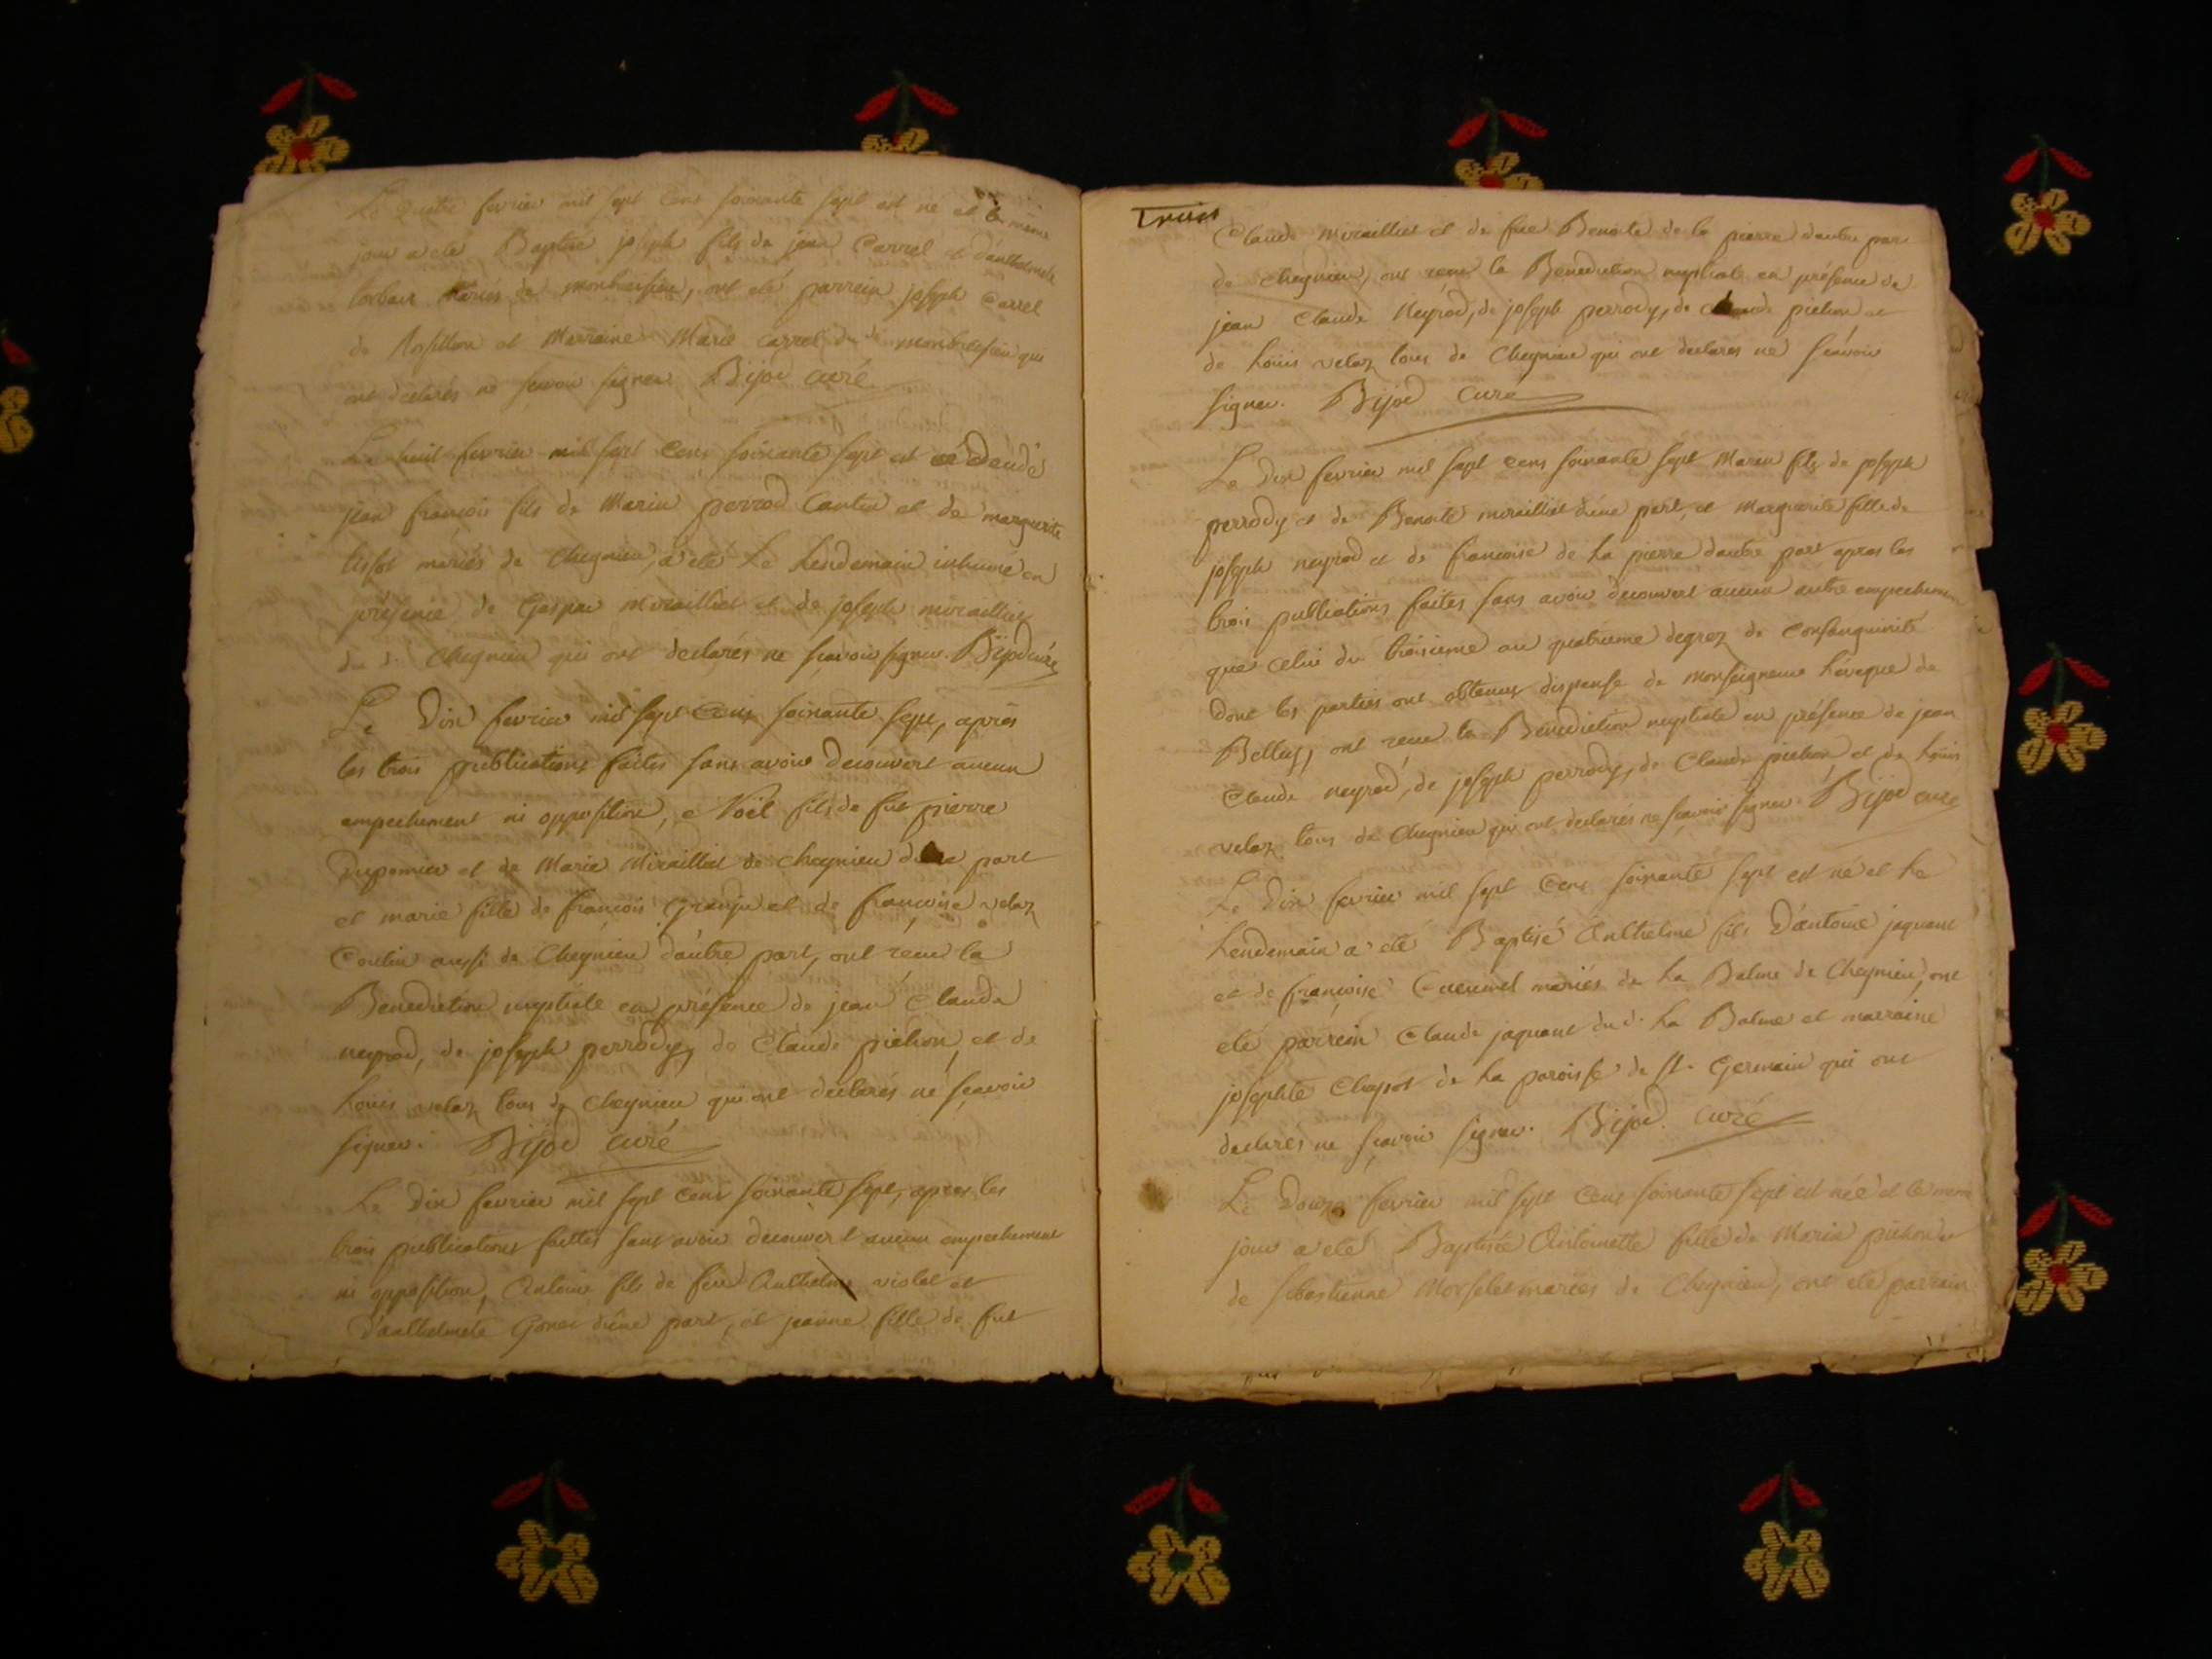 Le quatre fevrier mil sept cens soixante sept est né et le même
jour a eté Baptisé joseph fils de jean Carrel et d'anthelmete
mariés de ont eté parrein joseph Carrel
de Rossillon et Marraine Marie Carrel du d. qui
ont declarés ne scavoir signer Bijod curé
Le huit fevrier mil sept cens soixante sept est décédé
jean françois fils de Marin perrod Cantin et de marguerite
mariés de Cheynieu, a eté Le Lendemain inhumé en
présence de Gaspar miraillet et de joseph miraillet
du d. Cheynieu qui ont declarés ne scavoir signer. Bijod curé
Le Dix fevrier mil sept Cens soixante sept, après
les trois publications faites sans avoir decouvert aucun
empechement ni opposition, Noël fils de fut pierre
Dupomier et de Marie Miraillet de Cheynieu d'une part
et marie fille de françois et de françoise velaz
aussi de Cheynieu d'autre part, ont reçu la
Benediction nuptiale en présence de jean Claude
neyrod, de joseph perrody, de Claude pichon, et de
Louis velaz tous de Cheynieu qui ont declarés ne scavoir
signer. Bijod curé
Le Dix fevrier mil sept cens soixante sept, apres les
trois publications faittes sans avoir decouvert aucun empechement
ni opposition, Antoine fils de feu Anthelme violet et
D'anthelmete Gonet d'une part, et jeanne fille de fut
Trois
Claude miraillet et de fue Benoite de la pierre dautre part
de Cheynieu, ont reçu la Benediction nuptiale en présence de
jean Claude Neyrod, de joseph perrody, de Claude pichon et
de Louis velaz tous de Cheynieu qui ont declares ne scavoir
signer. Bijod curé
Le Dix fevrier mil sept cens soixante sept Marin fils de joseph
perrody et de Benoite miraillet d'une part, et Marguerite fille de
joseph neyrod et de françoise de La pierre dautre part apres les
trois publications faites sans avoir decouvert aucun autre empechement
que celui du troisieme au quatrieme degrez de Consanguinité
Dont les parties ont obtenus dispense de monseigneur Léveque de
Belley, ont reçu la Benediction nuptiale en présence de jean
Claude neyrod, de joseph perrody, de Claude pichon et de Louis
velaz tous de Cheynieu qui ont declarés ne scavoir signer. Bijod curé
Le Dix fevrier mil sept Cens soixante sept est né et Le
Lendemain a eté Baptisé Anthelme fils D'antoine jaquant
et de françoise mariés de La Balme de Cheynieu, ont
eté parrein Claude jaquant du d. La Balme et marraine
josephte de La paroisse de St. Germain qui ont
declarés ne scavoir signer. Bijod curé
Le Douze fevrier mil sept Cens soixante sept est née et le meme
jour a eté Baptisée Antoinette fille de Marin pichon et
de sebastienne Morselet mariés de Cheynieu, ont eté parrein